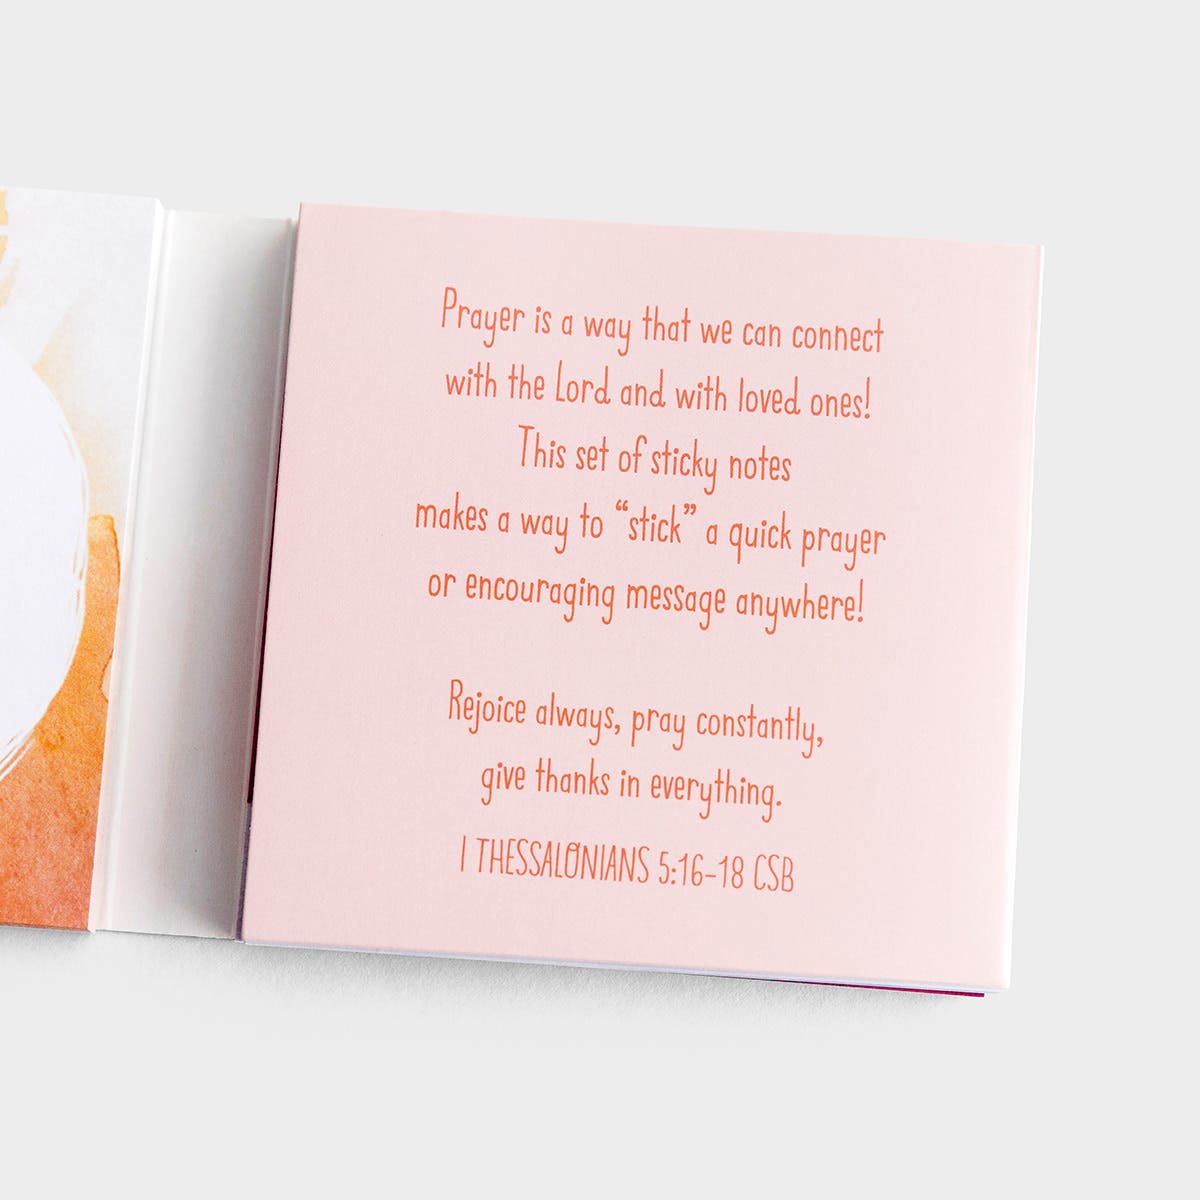 Prayer is a way that we can connect
with the Lord and with loved ones!
This set of sticky notes
makes a way to “stick” a quick prayer
or encouraging message anywhere!
Rejoice always, pray constantly,
give thanks in everything.
1 THESSALONIANS 5:16–18 CSB